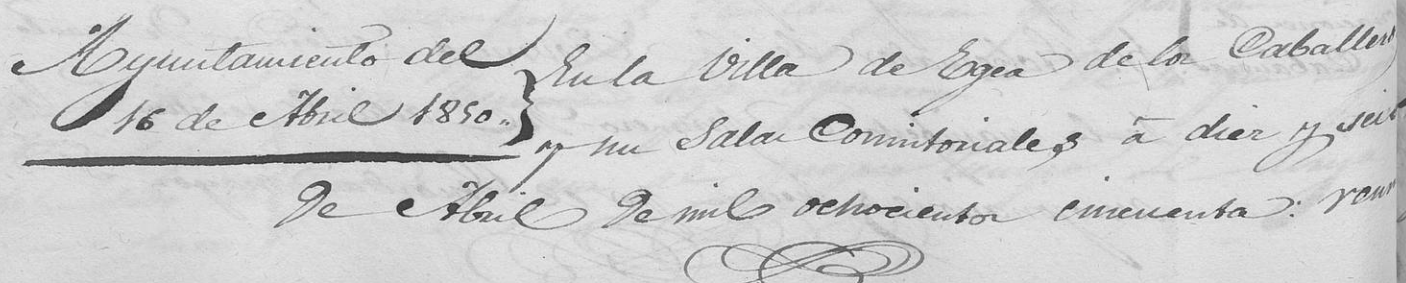 Ayuntamiento del
16 de Abril 1850.
En la Villa de Egea de los Caballeros
y sus Salas Consistoriales à diez y seis
de Abril de mil ochocientos cincuenta: reun